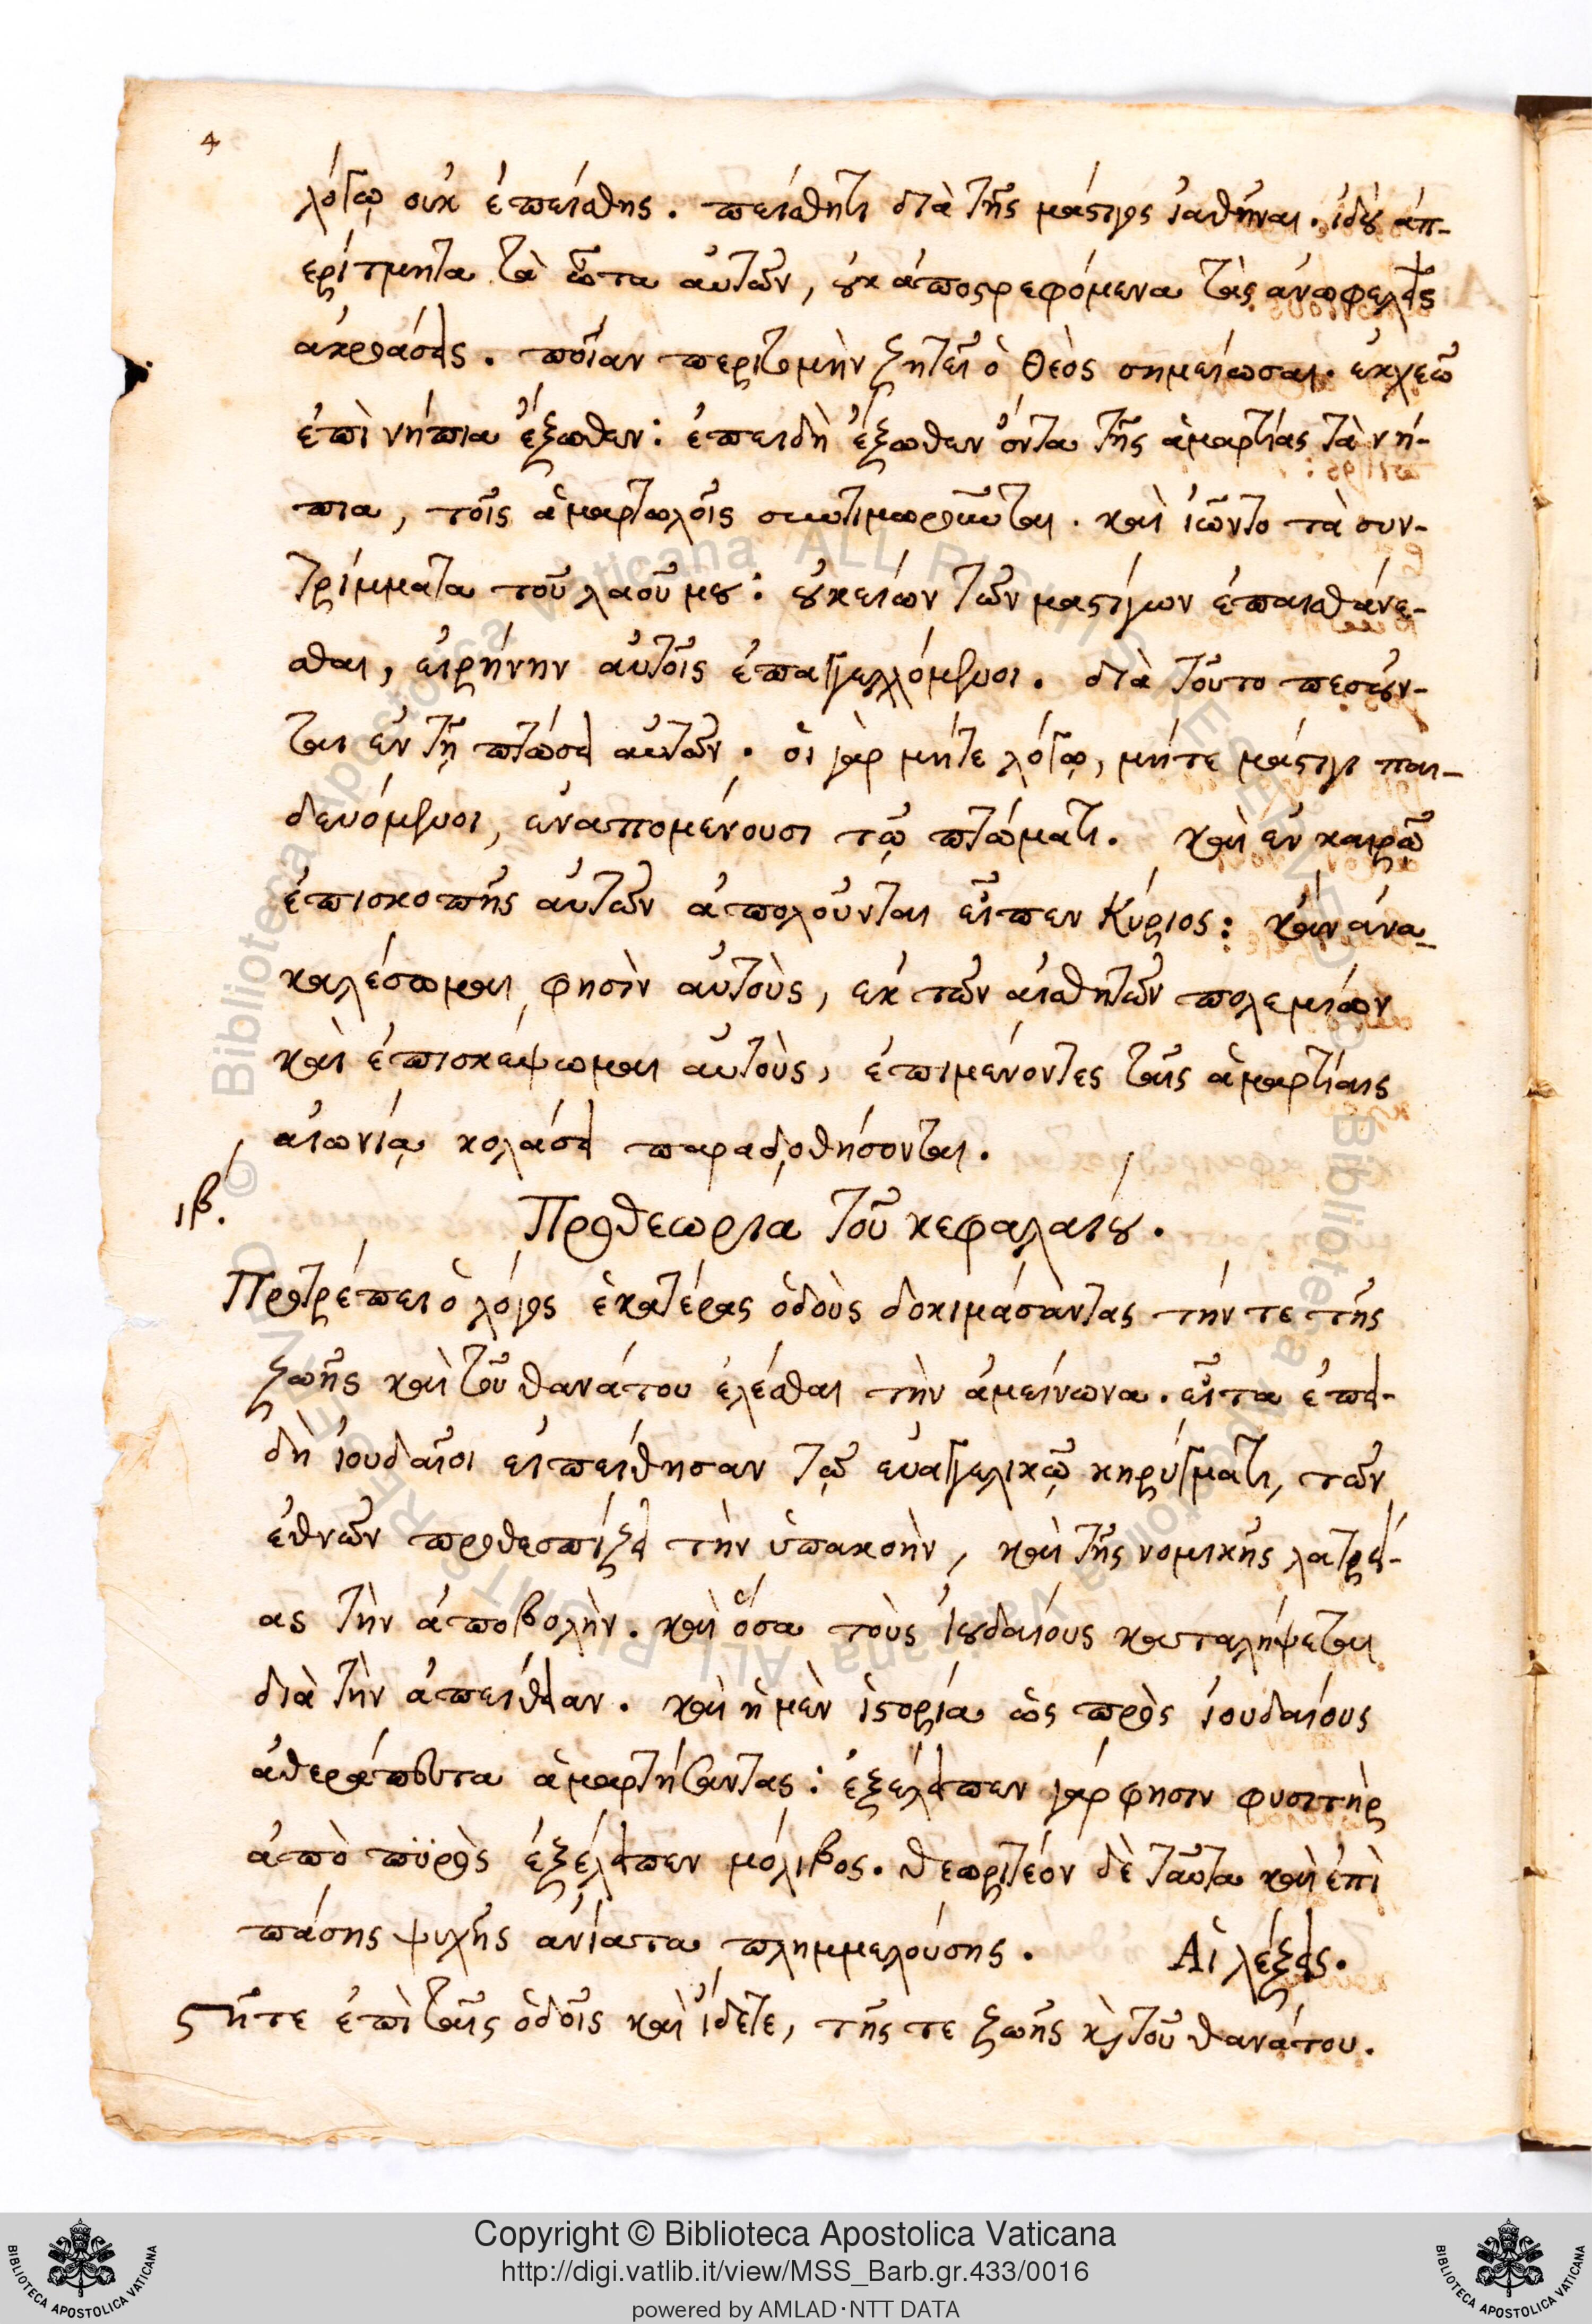 4
λόγῳ οὐκ ἐπείσθης. πείσθητι διὰ τῆς μάστιγος ἰαθῆναι. ἰδοὺ ἀπ-
ερίτμητα τὰ ὦτα αὐτῶν, οὐκ ἀποστρεφόμενα τὰς ἀνωφελεῖς
ἀκροάσεις. ποίαν περιτομὴν ζητεῖ ὁ Θεὸς σημείωσαι. ἐκχεῶ
ἐπὶ νήπια ἔξωθεν: ἐπειδὴ ἔξωθεν ὄντα τῆς ἁμαρτίας τὰ νή-
πια, τοῖς ἁμαρτωλοῖς συντιμωρεῖται. καὶ ἰῶντο τὰ συν-
τρίμματα τοῦ λαοῦ μου: οὐκ εἴων τῶν μαστίγων ἐπαισθάνε-
σθαι, εἰρήνην αὐτοῖς ἐπαγγελλόμενοι. διὰ τοῦτο πεσοῦν-
ται ἐν τῇ πτώσει αὐτῶν. οἱ γὰρ μήτε λόγῳ, μήτε μάστιγι παι-
δευόμενοι, ἐναπομένουσι τῷ πτώματι. καὶ ἐν καιρῷ
ἐπισκοπῆς αὐτῶν ἀπολοῦνται εἶπεν Κύριος: κἂν ἀνα-
καλέσωμαι φησὶν αὐτοὺς, ἐκ τῶν αἰσθητῶν πολεμίων
καὶ ἐπισκέψωμαι αὐτοὺς, ἐπιμένοντες ταῖς ἁμαρτίαις
αἰωνίᾳ κολάσει παραδοθήσονται.
ιβ. Προθεωρία τοῦ κεφαλαίου.
Προτρέπει ὁ λόγος ἑκατέρας ὁδοὺς δοκιμάσαντας τήν τε τῆς
ζωῆς καὶ τοῦ θανάτου ἑλέσθαι τὴν ἀμείνωνα. εἶτα ἐπει-
δὴ ἰουδαῖοι εἰπείθησαν τῷ εὐαγγελικῷ κηρύγματι, τῶν
ἐθνῶν προθεσπίζει τὴν ὑπακοὴν, καὶ τῆς νομικῆς λατρεί-
ας τὴν ἀποβολὴν. καὶ ὅσα τοὺς ἰουδαίους καταλήψεται
διὰ τὴν ἀπείθειαν. καὶ ἡ μὲν ἱστορία ὡς πρὸς ἰουδαίους
ἀθεράπευτα ἁμαρτήσαντας: ἐξέλειπεν γάρ φησιν φυσιτὴρ
ἀπὸ πϋρὸς ἐξέλειπεν μόλιβος. θεωριτέον δὲ ταῦτα καὶ ἐπὶ
πάσης ψυχῆς ἀνίατα πλημμελούσης. Αἱ λέξεις.
Στῆτε ἐπὶ ταῖς ὁδοῖς καὶ ἴδετε, τῆς τε ζωῆς καὶ τοῦ θανάτου.
Copyright © Biblioteca Apostolica Vaticana
http://digi.vatlib.it/view/MSS_Barb.gr.433/0016
powered by AMLAD·NTT DATA
BIBLIOTECA APOSTOLICA VATICANA
BIBLIOTECA APOSTOLICA VATICANA